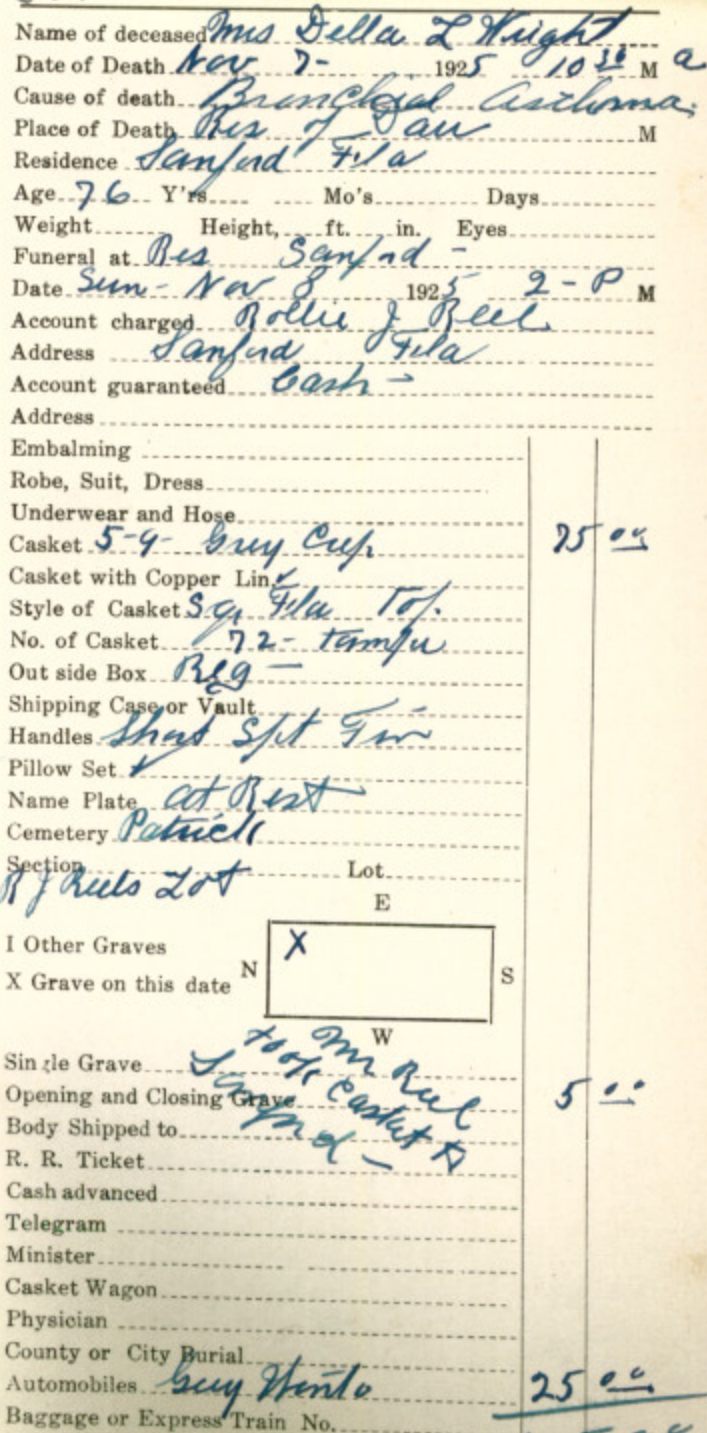 Name of deceased Mrs Della L Wright
Date of Death Nov 7- 1925 10 30 M a
Cause of death Bronchial Asthma
Place of Death Res of M
Residence Sanford Fla
Age 76 Y'rs Mo's Days
Weight Height, ft. in. Eyes
Funeral at Res Sanford -
Date Sun- Nov 8 1925 2-P M
Account charged Rollie J Reel
Address Sanford Fla
Account guaranteed Cash -
Address
Embalming
Robe, Suit, Dress
Underwear and Hose
Casket 5-9- Grey Crep 75 00
Casket with Copper Lin.
Style of Casket Sq Top.
No. of Casket 72- Tampa
Out side Box Reg -
Shipping Case or Vault
Handles Short
Pillow Set ✓
Name Plate at Rest
Cemetery Patrick
Section Lot
R J Reels Lot
E
I Other Graves
X Grave on this date N X S
W
Single Grave
Mr Reel
took Casket to
Sanford -
Opening and Closing Grave 5 00
Body Shipped to
R. R. Ticket
Cash advanced
Telegram
Minister
Casket Wagon
Physician
County or City Burial
Automobiles Guy 25 00
Baggage or Express Train No.